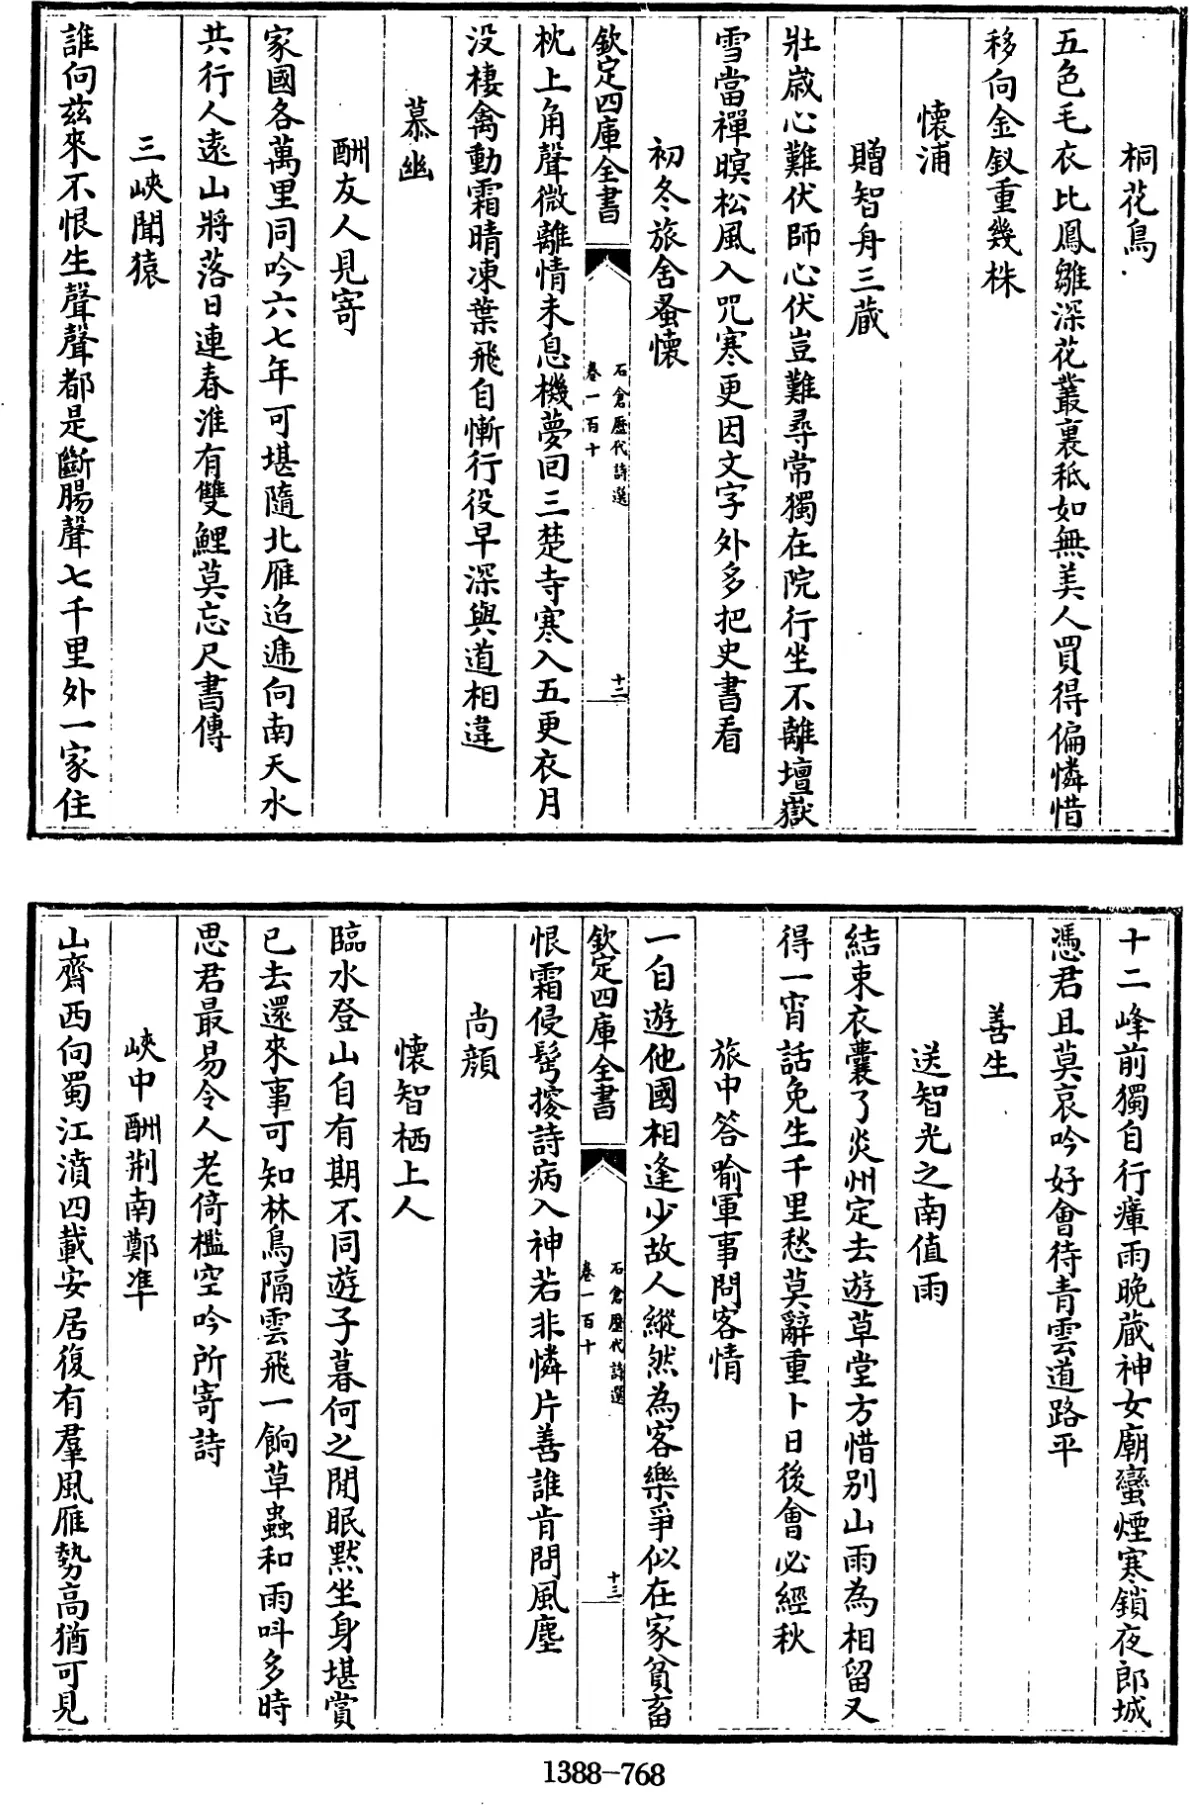 桐花鳥
五色毛衣比鳳雛深花叢裏秪如無美人買得偏憐惜
移向金釵重幾株
懷浦
贈智舟三藏
壯歲心難伏師心伏豈難尋常獨在院行坐不離壇嶽
雪當禪暝松風入咒寒更因文字外多把史書看
初冬旅舍蚤懷
欽定四庫全書
石倉歷代詩選
卷一百十
十二
枕上角聲微離情未息機夢回三楚寺寒入五更衣月
没棲禽動霜晴凍葉飛自慚行役早深與道相違
慕幽
酬友人見寄
家國各萬里同吟六七年可堪隨北雁迢遞向南天水
共行人遠山將落日連春淮有雙鯉莫忘尺書傳
三峽聞猿
誰向兹來不恨生聲聲都是斷腸聲七千里外一家住
十二峰前獨自行瘴雨晚藏神女廟蠻煙寒鎖夜郎城
憑君且莫哀吟好會待青雲道路平
善生
送智光之南值雨
結束衣囊了炎州定去遊草堂方惜别山雨為相留又
得一宵話免生千里愁莫辭重卜日後會必經秋
旅中答喻軍事問客情
一自遊他國相逢少故人縱然為客樂爭似在家貧畜
欽定四庫全書
石倉歷代詩選
卷一百十
十三
恨霜侵鬢搜詩病入神若非憐片善誰肯問風塵
尚顔
懷智栖上人
臨水登山自有期不同遊子暮何之閒眠黙坐身堪賞
已去還來事可知林鳥隔雲飛一餉草蟲和雨呌多時
思君最易令人老倚檻空吟所寄詩
峽中酬荆南鄭準
山齋西向蜀江濆四載安居復有羣風雁勢高猶可見
1388-768